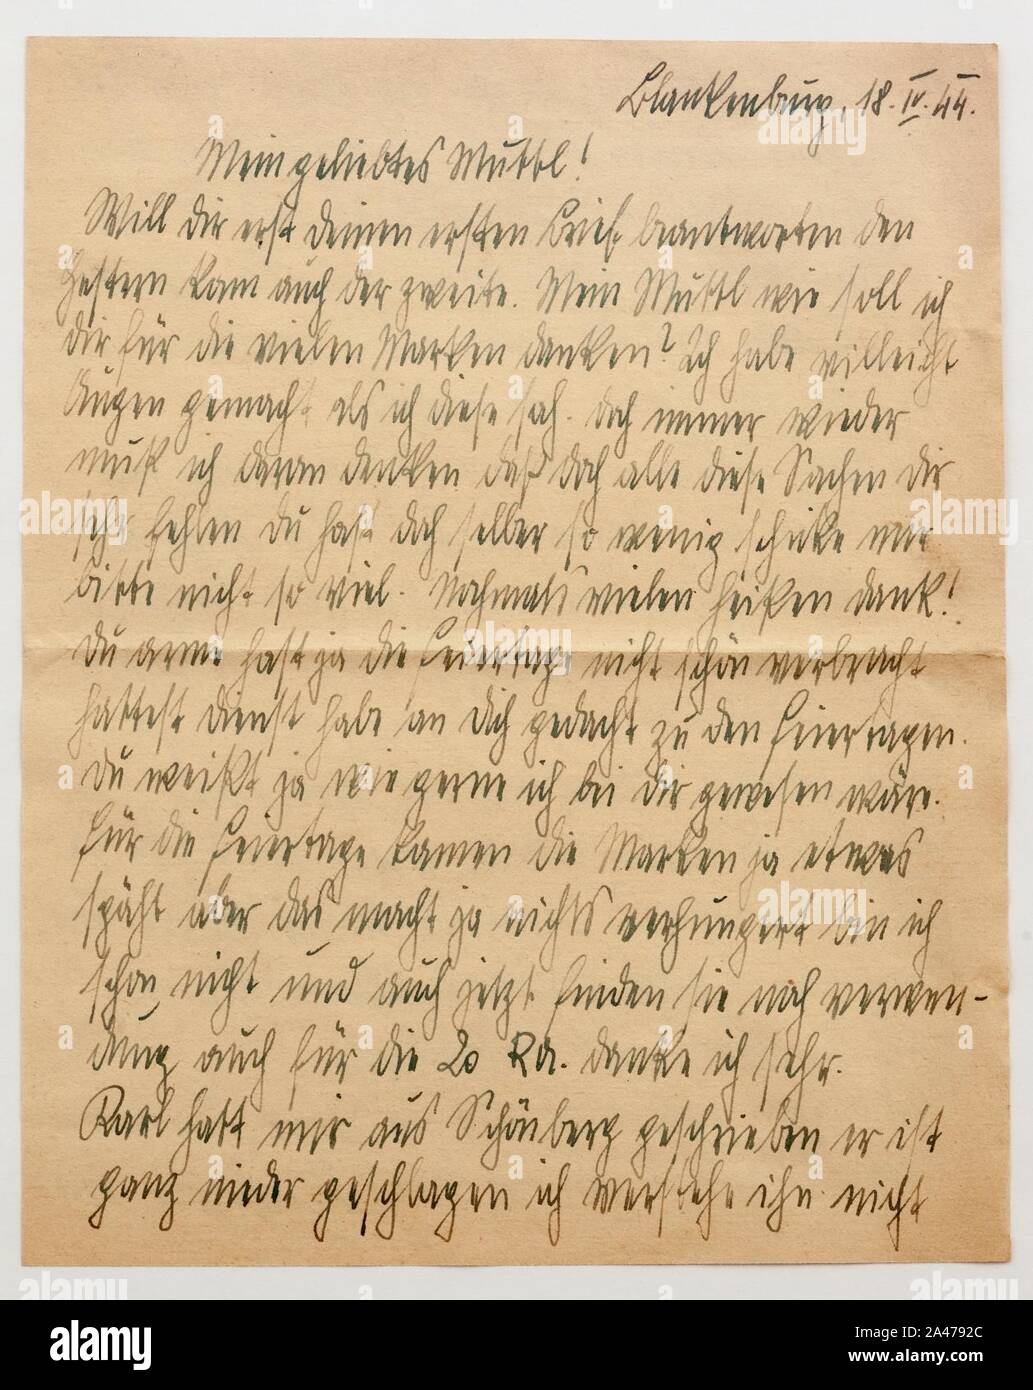 Blankenburg, 18. IV. 44.
Mein geliebtes Muttl!
Will dir erst deinen ersten Brief beantworten den
gestern kam auch der zweite. Mein Muttl wie soll ich
dir für die vielen Marken danken? Ich habe villeicht
Augen gemacht als ich diese sah. doch immer wieder
muß ich daran denken daß doch alle diese Sachen dir
sehr fehlen du hast doch selber so wenig schicke mir
bitte nicht so viel. Nochmals vielen heißen dank!
Du arme hast ja die Feiertage nicht schön verbracht
hattest dienst habe an dich gedacht zu den Feiertagen.
Du weißt ja wie gerne ich bei dir gewesen wäre.
Für die Feiertage kamen die Marken ja etwas
späht aber das macht ja nichts verhungert bin ich
schon nicht und auch jetzt finden sie noch verwen-
dung auch für die 20 danke ich sehr.
Karl hatt mir aus Schönberg geschrieben er ist
ganz nieder geschlagen ich verstehe ihn nicht
alamy
Image ID: 2A4792C
www.alamy.com